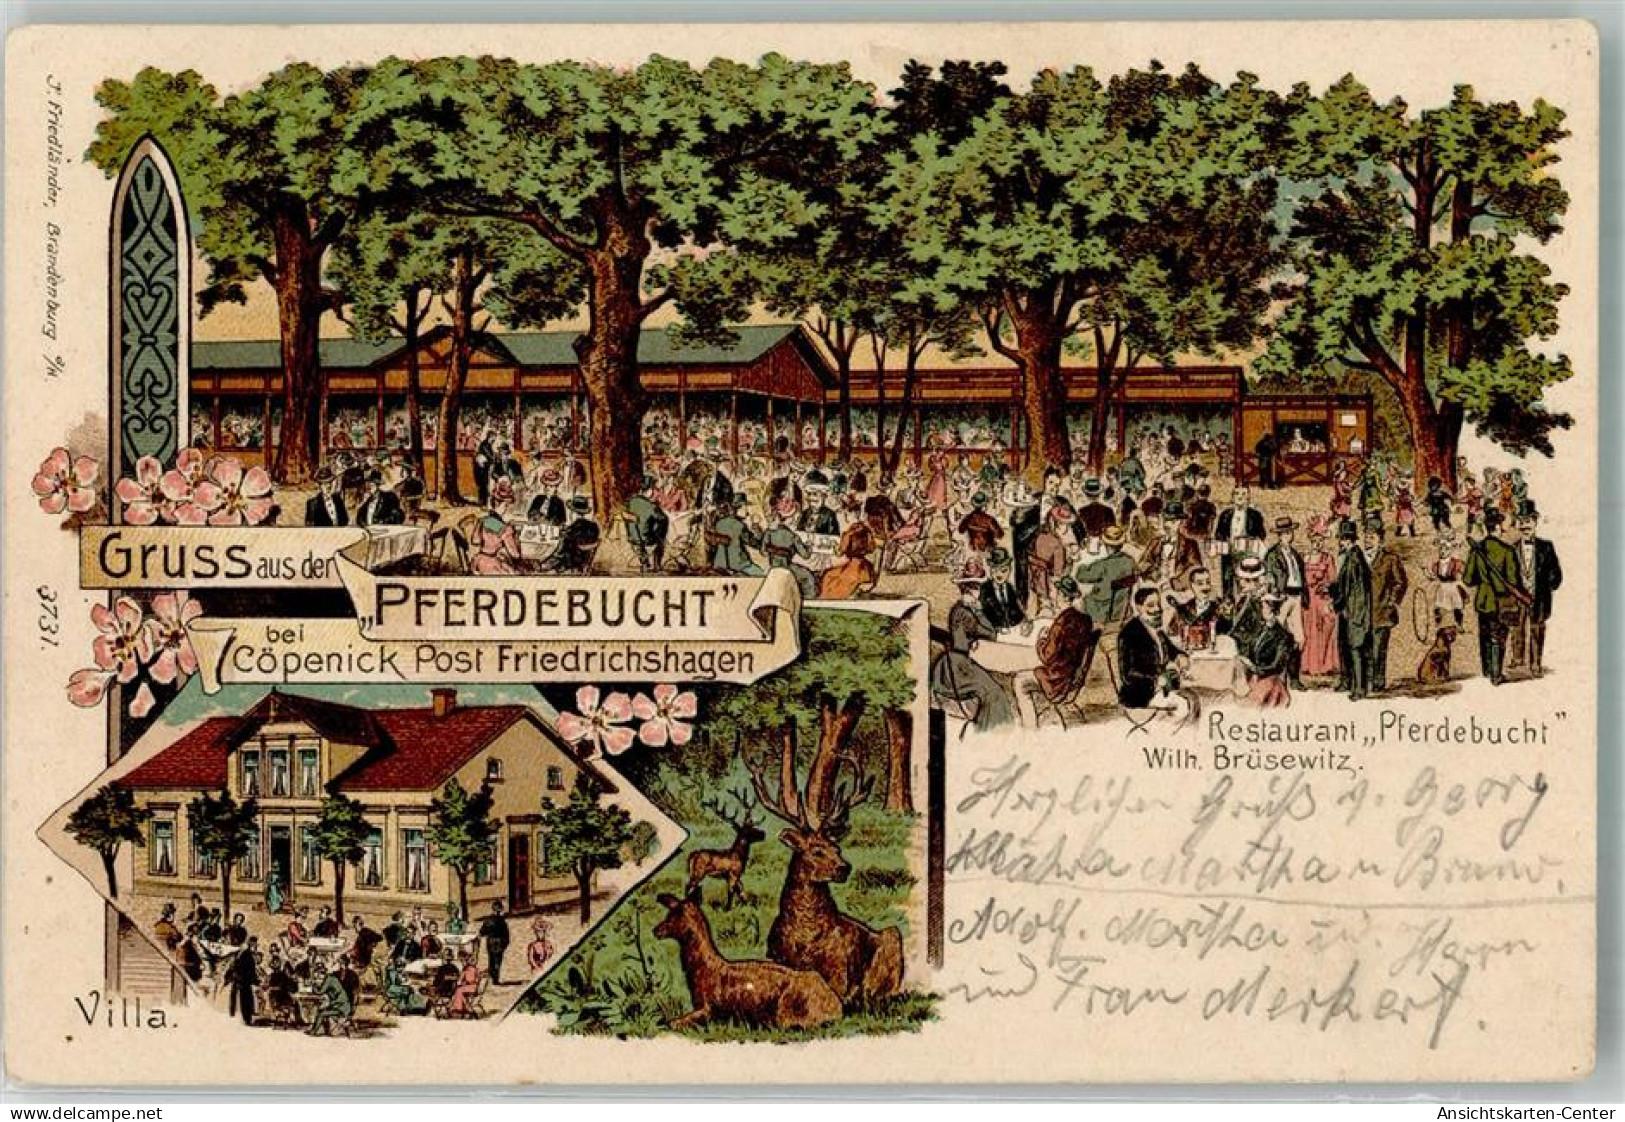 J. Friedländer, Brandenburg a/H.
3731.
Gruss aus der
„PFERDEBUCHT"
bei
Cöpenick Post Friedrichshagen
Restaurant „Pferdebucht"
Wilh. Brüsewitz.
Herzlichen Gruß v. Georg
Martha u Bruno.
Adolf. Martha u. Herrn
und Frau Merkert.
Villa.
www.delcampe.net
Ansichtskarten-Center